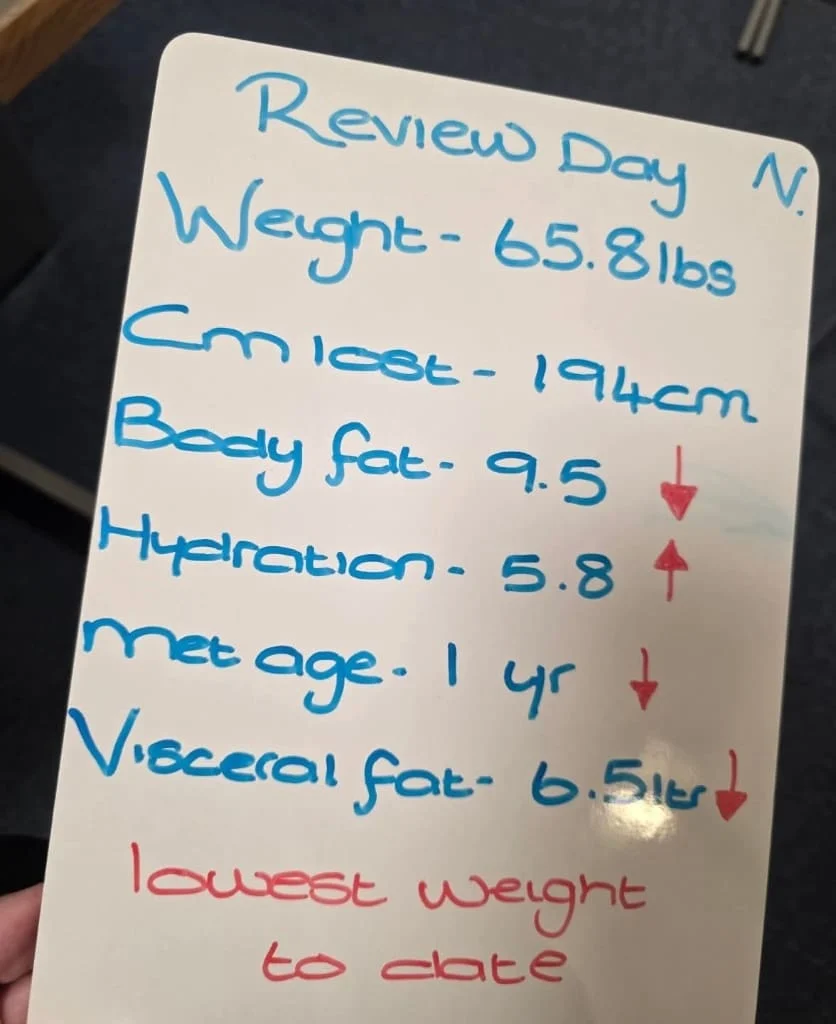 Review Day N.
Weight - 65.8lbs
Cm lost - 194cm
Body fat - 9.5 ↓
Hydration - 5.8 ↑
Met age - 1 yr ↓
Visceral fat - 6.5ltr ↓
lowest weight
to date